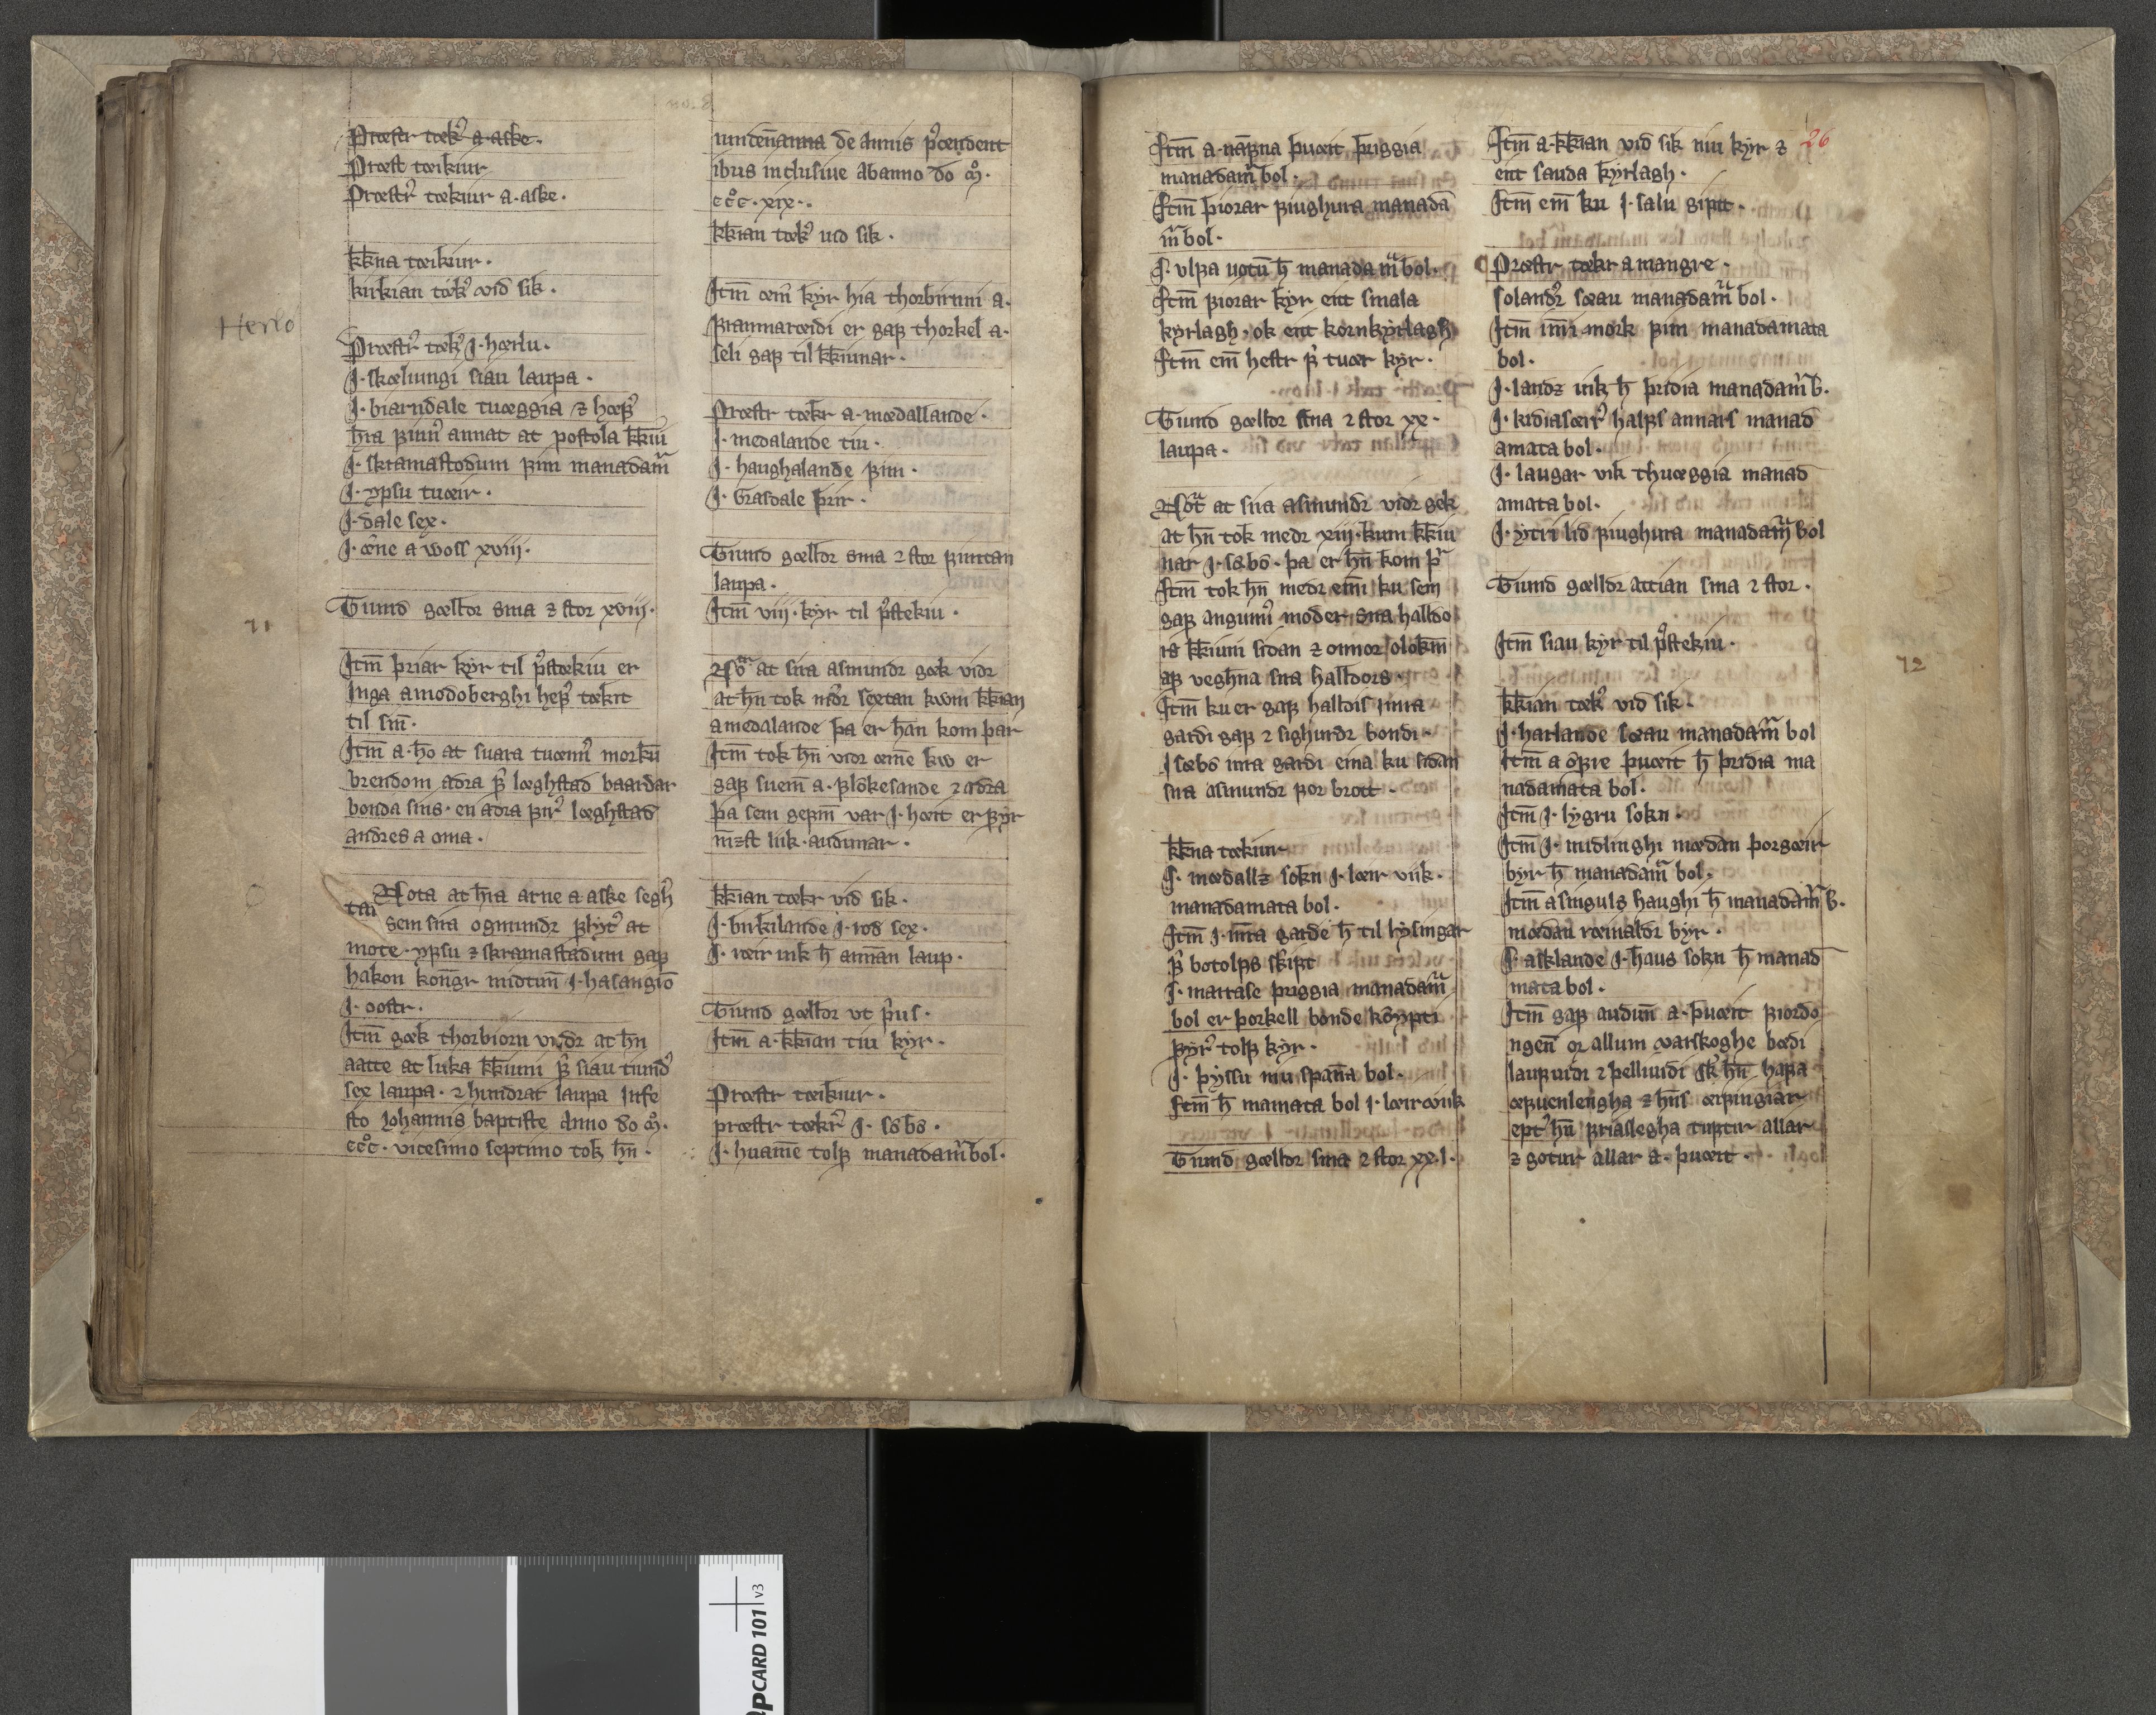 Herlo
71
Prestr tekr a aske.
Prest teikiur
Prestr tekiur a. aske.
kk̄na teikiur.
kirkian tekr vid sik.
Prestr tekr J. herlu.
J. skeliungi siau laupa.
J. biarndale tueggia ⁊ hefr
h̄ia fimr annat at postola kk̄iu
J. skramastodum fim manadam̄
J. ypsu tueir.
J. dale sex.
J. ēne a woss xviii.
Tiund gelldor sma ⁊ stor xviii.
Jtm̄ þriar kyr til p̄stekiu er
Jnga a modoberghi hefr tekit
til sin̄.
Jtm̄ a. h̄o at suara tuem̄ morkū
brendom adra f̄ leghstad baardar
bonda sins. en adra fir leghstad
andres a oma.
Nota at h̄ra arne a aske segh
tai sem sira ogmundr flyt at
mote. ypsu ⁊ skramastadum gaf
hakon kon̄gr midtun̄ J. hasangrō
J. oostr.
Jtm̄ gek thorbiorn vidr at hn̄
aatte at luka kk̄iuni f̄ siau tiund
sex laupa. ⁊ hundrat laupa Jnfe
sto Johannis baptiste Anno do m̊.
ccc̊. vicesimo septimo tok hn̄.
iundenanna de annis p̄cendent
ibus inclusiue Ab anno do m̊.
ccc̊. xix..
kk̄ian tekr uid sik.
Jtm̄ em̄ kyr hia thorbirnni a.
frannareidi er gaf thorkel a.
seli gaf til kk̄iunnar.
Prestr tekr a. medallande.
J. medalande tiu.
J. haughalande fim.
J. Grasdale þrir.
Tiund gelldor sma ⁊ stor fimtan
laupa.
Jtm̄ viii. kyr til p̄stekiu.
Nō at sira asmundr gek vidr
at hn̄ tok medr sextan kwm kk̄ian
a medalande þa er han kom þar
Jtm̄ tok hn̄ vidr eine kw er
gaf suein̄ a. flokesande ⁊ adra
þa sem gefin̄ var J. heit er fyr
m̄⁊st liik. audunar.
kk̄ian tekr vid sik.
J. birkilande J. rod sex.
J. reir uik h̄ annan laup.
Tiund gelldor vt p̄us.
Jtm̄ a. kk̄ian tiu kyr.
Prestr teikiur.
prestr tekr J. sebo.
J. huam̄e tolf manadam̄bol.
26
72
Jtm̄ a. nafna þueit þriggia
manadam̄ bol.
Jtm̄ fiorar fiughura manada
m̄ bol.
J. vlfa uotū h̄ manada m̄ bol.
Jtm̄ fiorar kyr eitt smala
kyrlagh. ok eitt kornkyrlagh
Jtm̄ ein̄ hestr f̄ tuer kyr.
Tiund gelldor sma ⁊ stor xx.
laupa.
Nōt at sira asmundr vidr gek
at hn̄ tok medr xiii. kum kk̄iu
nar J. sebo. þa er hn̄ kom þ̄r
Jtm̄ tok hn̄ medr ein̄i ku sem
gaf angunn̄ moder sira halldo
rs kk̄iuni sidan ⁊ onnor olokin̄
af veghna sira halldors.
Jtm̄ ku er gaf halldis Jnnra
gardi gaf ⁊ sighurdr bondi
J sebo inra gardi eina ku sidan
sira asmundr for brott.
kk̄na tekiur
J. medall⁊ sokn J. leir viik.
manadamata bol.
Jtm̄ J. inra garde h̄ til lysingar
f̄ botolfs skipt
J. mattase þriggia manadam̄
bol er þorkell bonde kōypti
fyr tolf kyr.
J. þyssu niu span̄a bol.
Jtm̄ h̄ mamata bol J. leirowiik
Tiund gelldor sma ⁊ stor xx.J.
Jtm̄ a. kk̄ian vid sik niu kyr ⁊
eitt sauda kyrlagh.
Jtm̄ ein̄ ku J. salu gipt.
Prestr tekr a mangre.
solandr seau manadam̄ bol.
Jtm̄ im̄i mork fim manadamata
bol.
J. land⁊ uik h̄ þridia manadam̄ b.
J. kidiaseitr halfs annars manad
amata bol.
J. laugar vik thueggia manad
amata bol.
J. ytri lid fiughura manadam̄ bol
Tiund gelldor attian sma ⁊ stor.
Jtm̄ siau kyr til p̄stekiu.
kk̄ian tekr vid sik.
J. harlande seau manadam̄ bol
Jtm̄ a ōfre þueit h̄ þridia ma
nadamata bol.
Jtm̄ J. lygru sokn.
Jtm̄ J. midlinghi medan þorgeir
byr h̄ manadam̄ bol.
Jtm̄ a singuls haughi h̄ manadam̄ b.
medan reinaldr byr.
J. asklande J. haus sokn h̄ manad
mata bol.
Jtm̄ gaf audun̄ a. þueit fiordo
ngen̄ or allum varskoghe bedi
laufuidi ⁊ þelliuidi sk̄ hn̄ hafa
efuenlengha ⁊ hn̄s erfingiar
ept hn̄ friaslegha tuftir allar
⁊ gotur allar a. þueit.